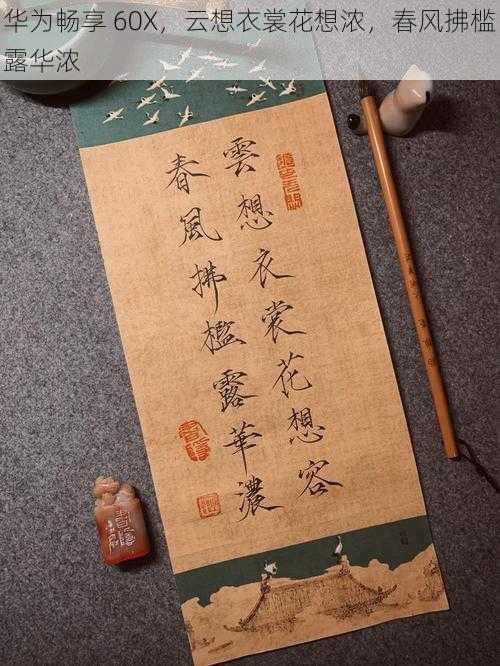 华为畅享 60X，云想衣裳花想浓，春风拂槛
露华浓
雲想衣裳花想容
春風拂檻露華濃